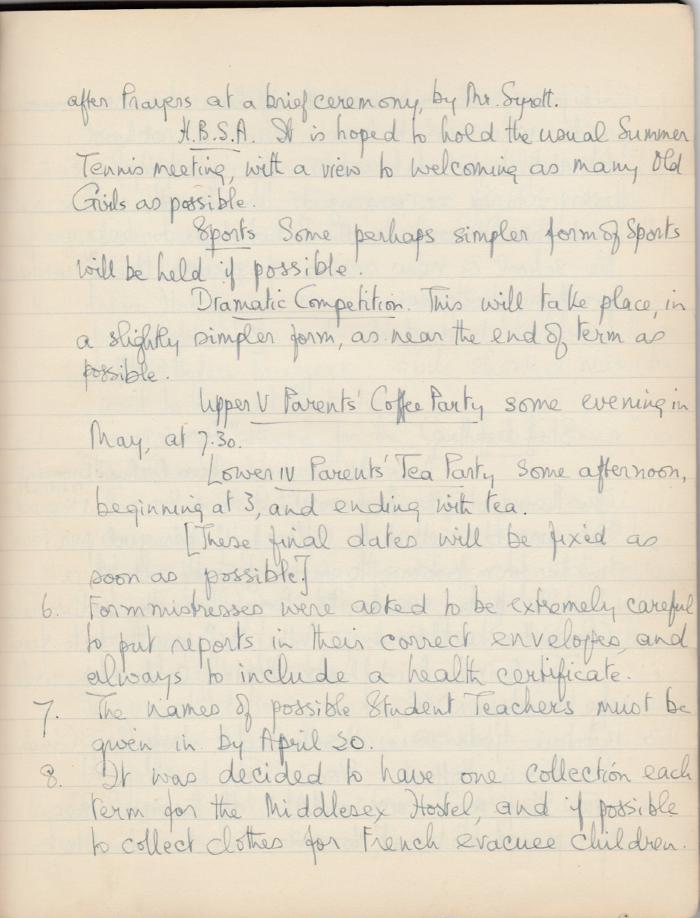 after Prayers at a brief ceremony, by Mr. Syrott.
H.B.S.A. It is hoped to hold the usual Summer
Tennis meeting, with a view to welcoming as many Old
Girls as possible.
Sports Some perhaps simpler form of Sports
will be held if possible.
Dramatic Competition. This will take place, in
a slightly simpler form, as near the end of term as
possible.
Upper V Parents' Coffee Party some evening in
May, at 7.30.
Lower IV Parents' Tea Party some afternoon,
beginning at 3, and ending with tea.
[These final dates will be fixed as
soon as possible.]
6. Formmistresses were asked to be extremely careful
to put reports in their correct envelopes, and
always to include a health certificate.
7. The names of possible Student Teachers must be
given in by April 20.
8. It was decided to have one collection each
term for the Middlesex Hostel, and if possible
to collect clothes for French evacuee children.